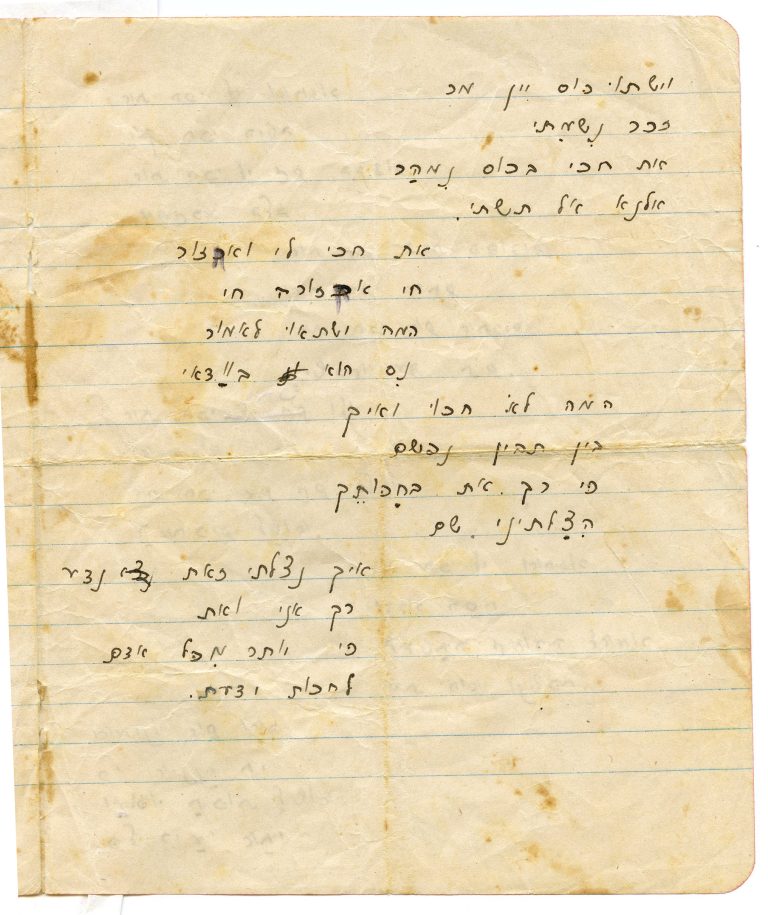 וישתו כוס יין מר
זכר נשמתי
את חכי בכוס נמהר
אלנא אל תשתי.
את חכי לי ואחזור
חי אחזורה חי
המה ישתאו לאמור
נס הוא בוודאי
המה לא חכו ואיך
בין תבין נפשם
כי רק את בחכותך
הצלתיני שם
איך נצלתי זאת נדע
רק אני ואת
כי יותר מכל אדם
לחכות ידעת.